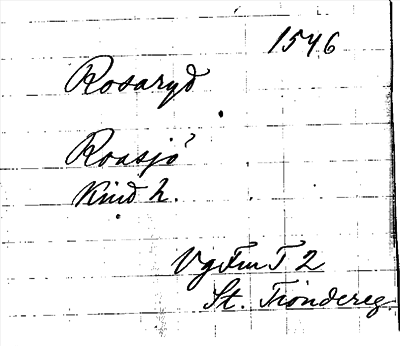 1546
Rosaryd
Roasjö
Kind h.
Vg Fm T 2
St. Tiondereg.